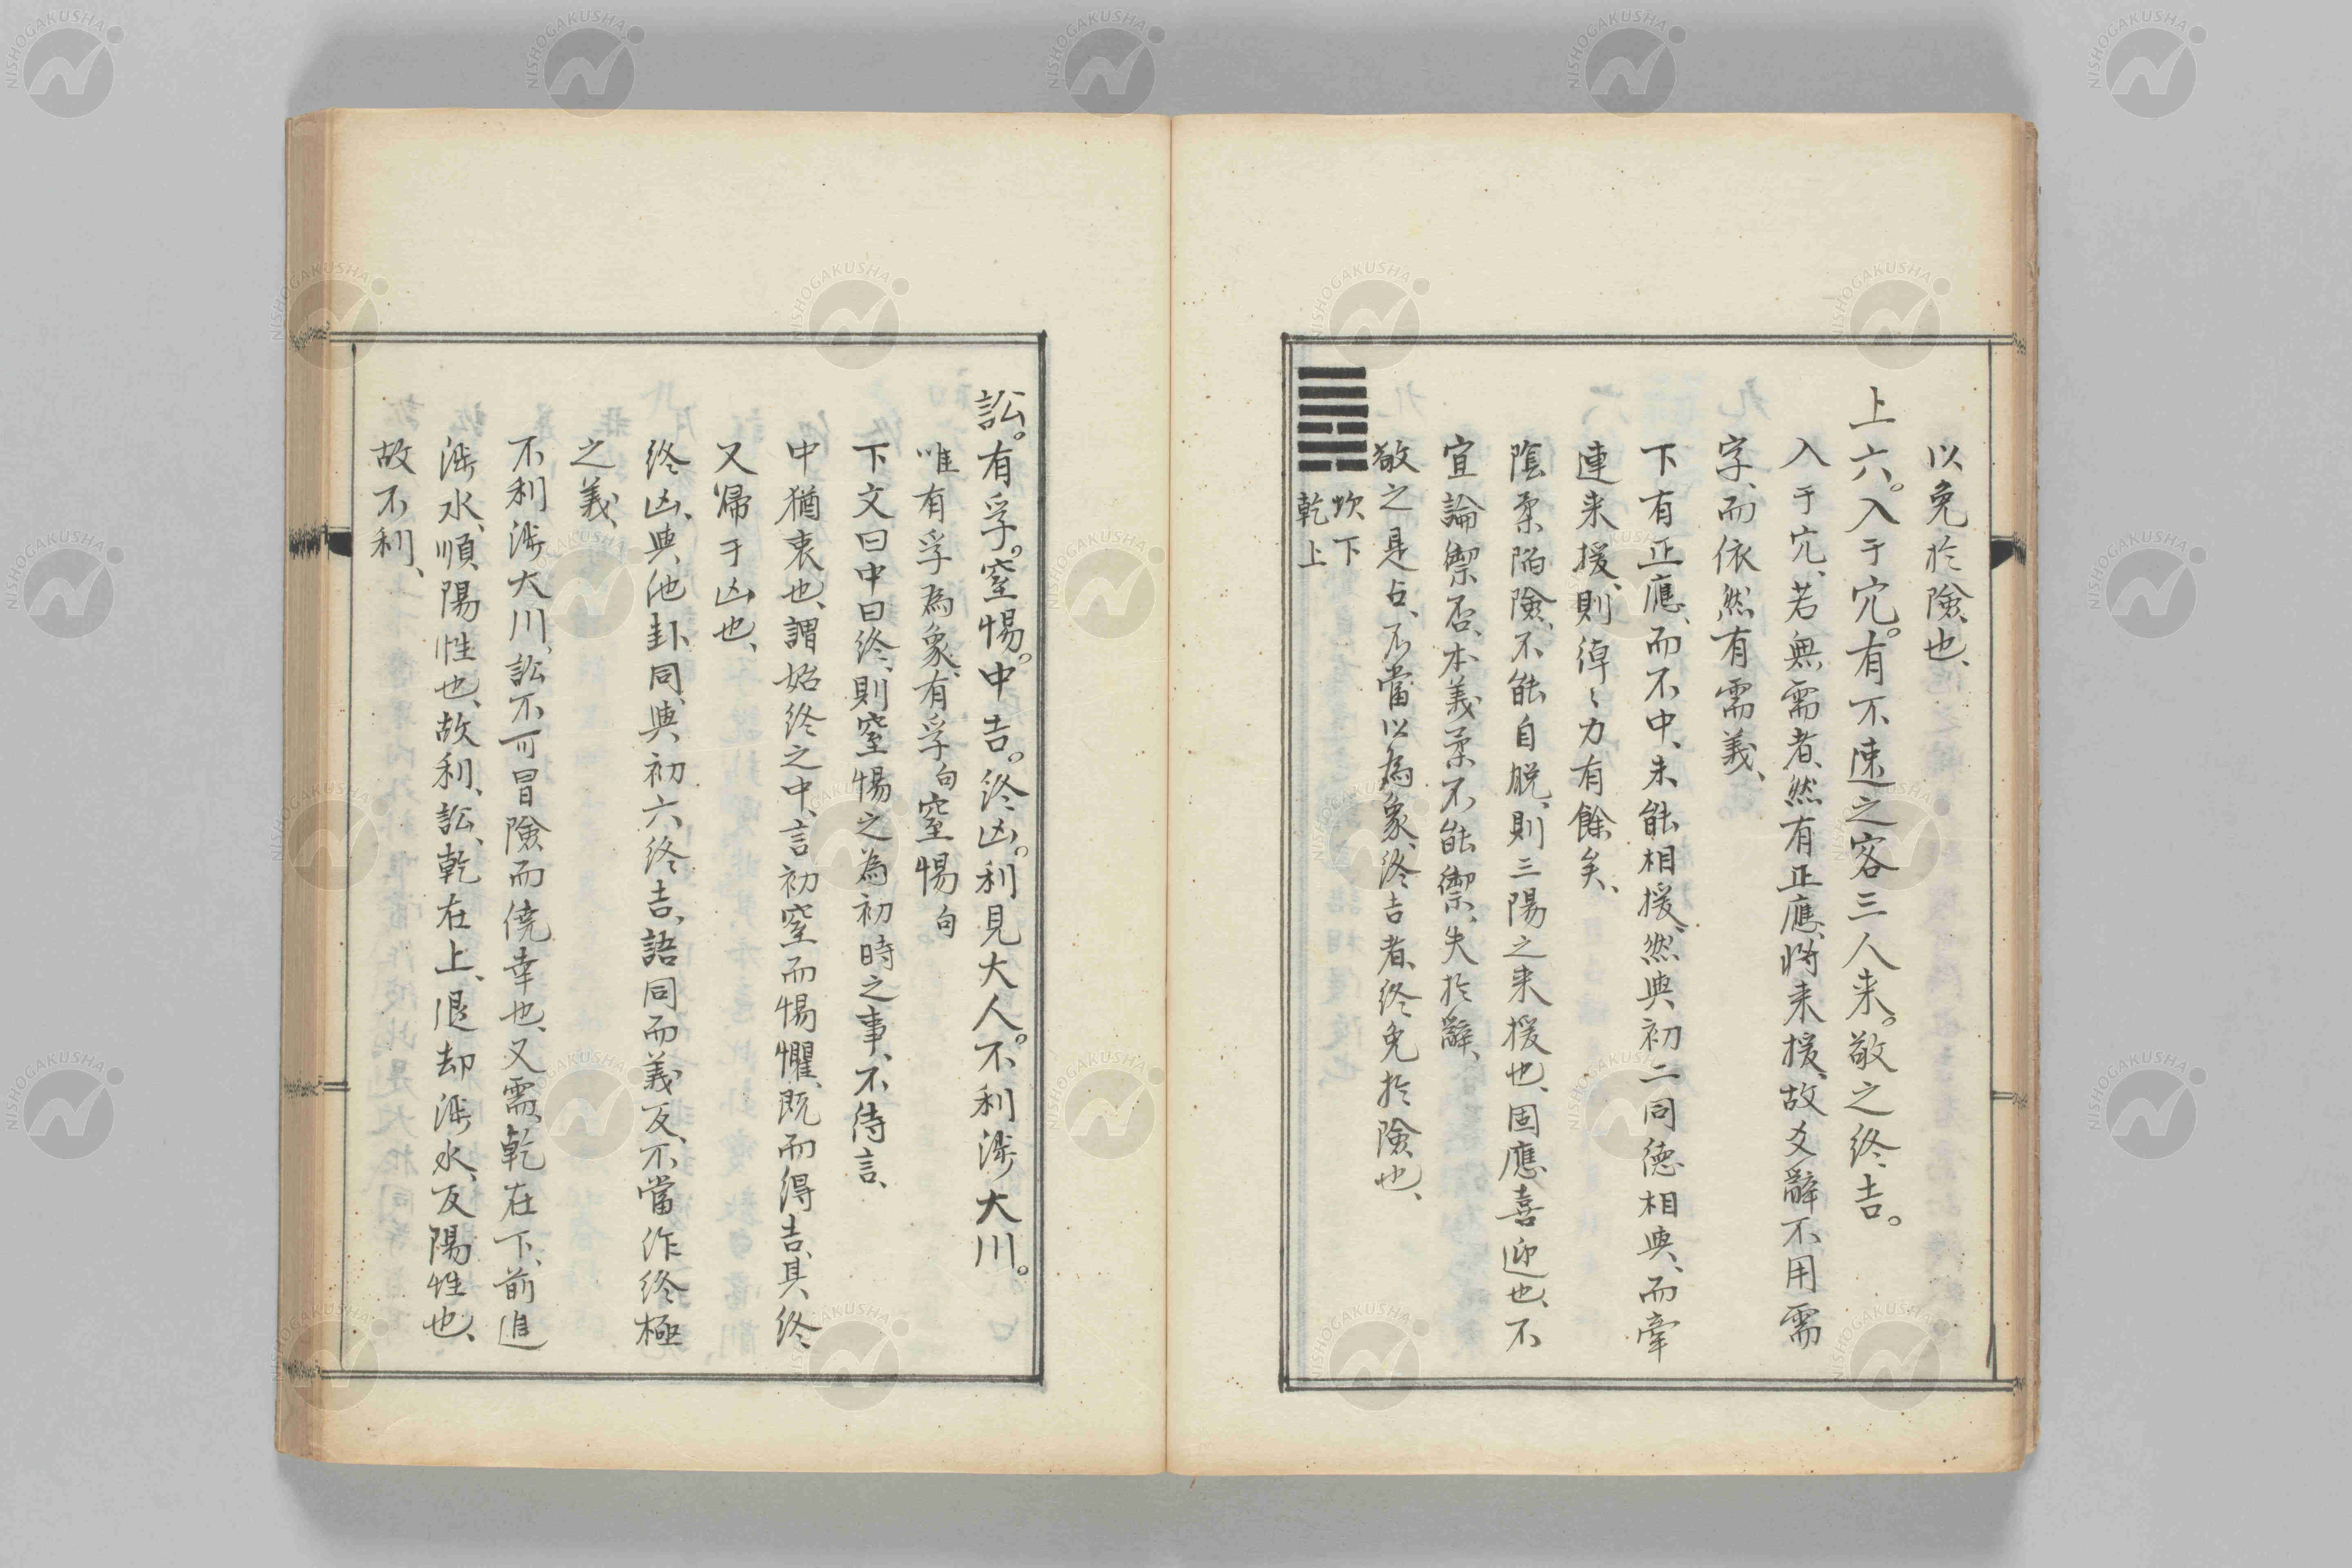 以免於險也、
上六。入于穴。有不速之客三人来。敬之終吉。
入于穴、若無需者、然有正應、将来援、故爻辭不用需
字、而依然有需義、
下有正應、而不中、未能相援、然與初二同德相與、而牽
連来援、則綽〻力有餘矣、
陰柔陷險、不能自脱、則三陽之来援也、固應喜迎也、不
宜論禦否、本義柔不能禦、失於辭、
敬之是占、不當以為象、終吉者、終免於險也、
坎下
乾上
訟。有孚。窒惕。中吉。終凶。利見大人。不利渉大川。
唯有孚為象、有孚句窒惕句
下文曰中曰終、則窒惕之為初時之事、不待言、
中猶衷也、謂始終之中、言初窒而惕懼、既而得吉、具終
又歸于凶也、
終凶、與他卦同、與初六終吉、語同而義反、不當作終極
之義、
不利渉大川、訟不可冒險而僥幸也、又需、乾在下、前進
渉水、順陽性也、故利、訟、乾在上、退却渉水、反陽性也、
故不利、
NISHOGAKUSHA